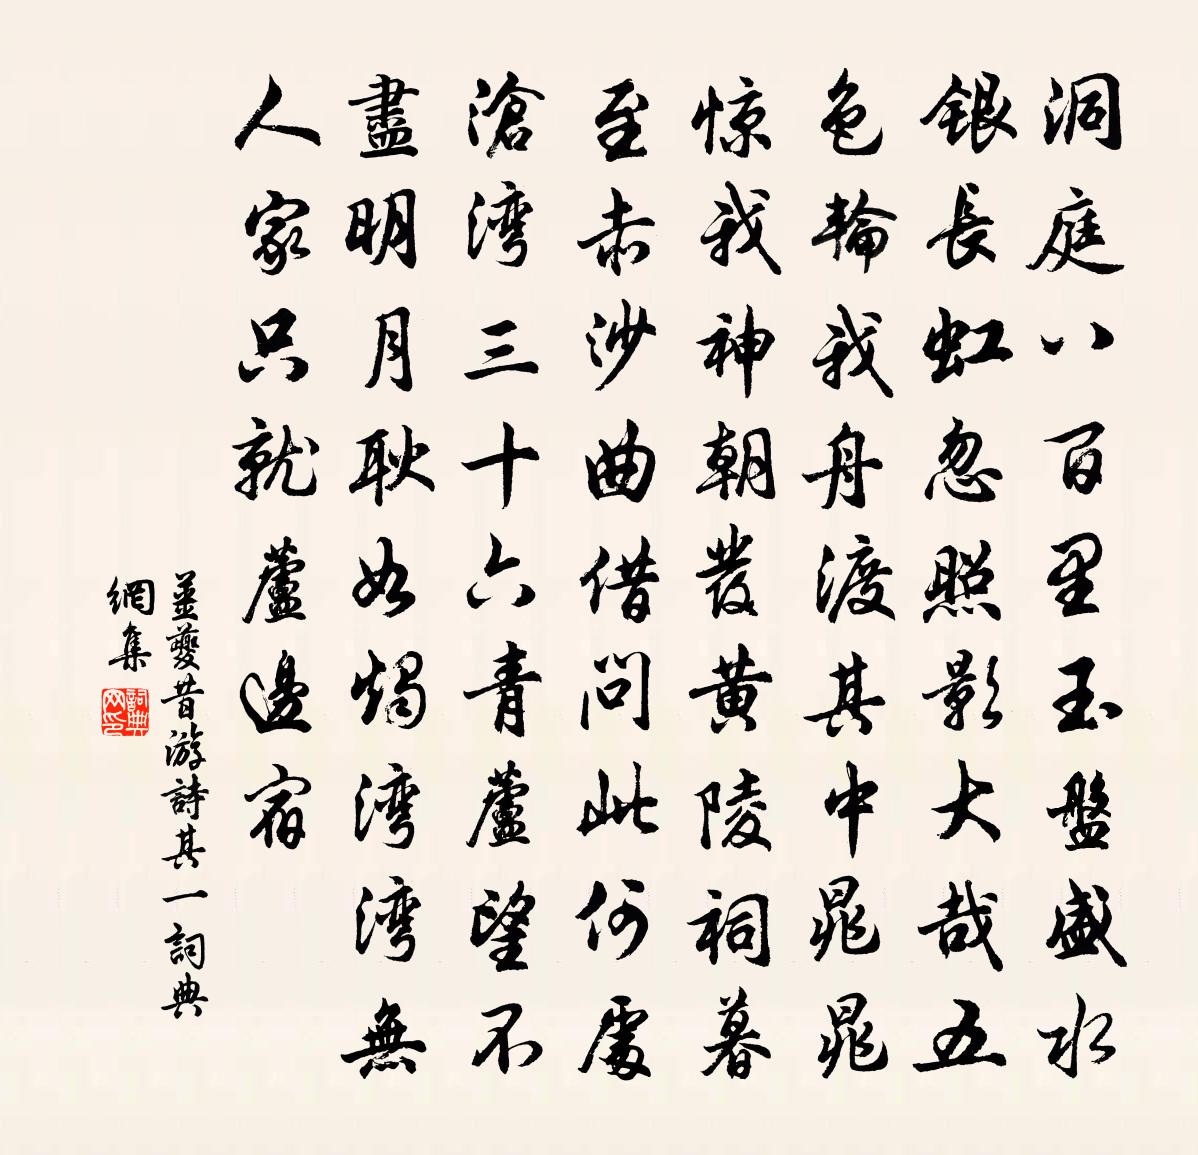 洞庭八百里玉盤盛水
銀長虹忽照影大哉五
色輪我舟渡其中晁晁
惊我神朝發黃陵祠暮
至赤沙曲借問此何處
滄湾三十六青蘆望不
盡明月耿如燭湾湾無
人家只就蘆邊宿
姜夔昔游詩其一詞典
網集
詞典
网印